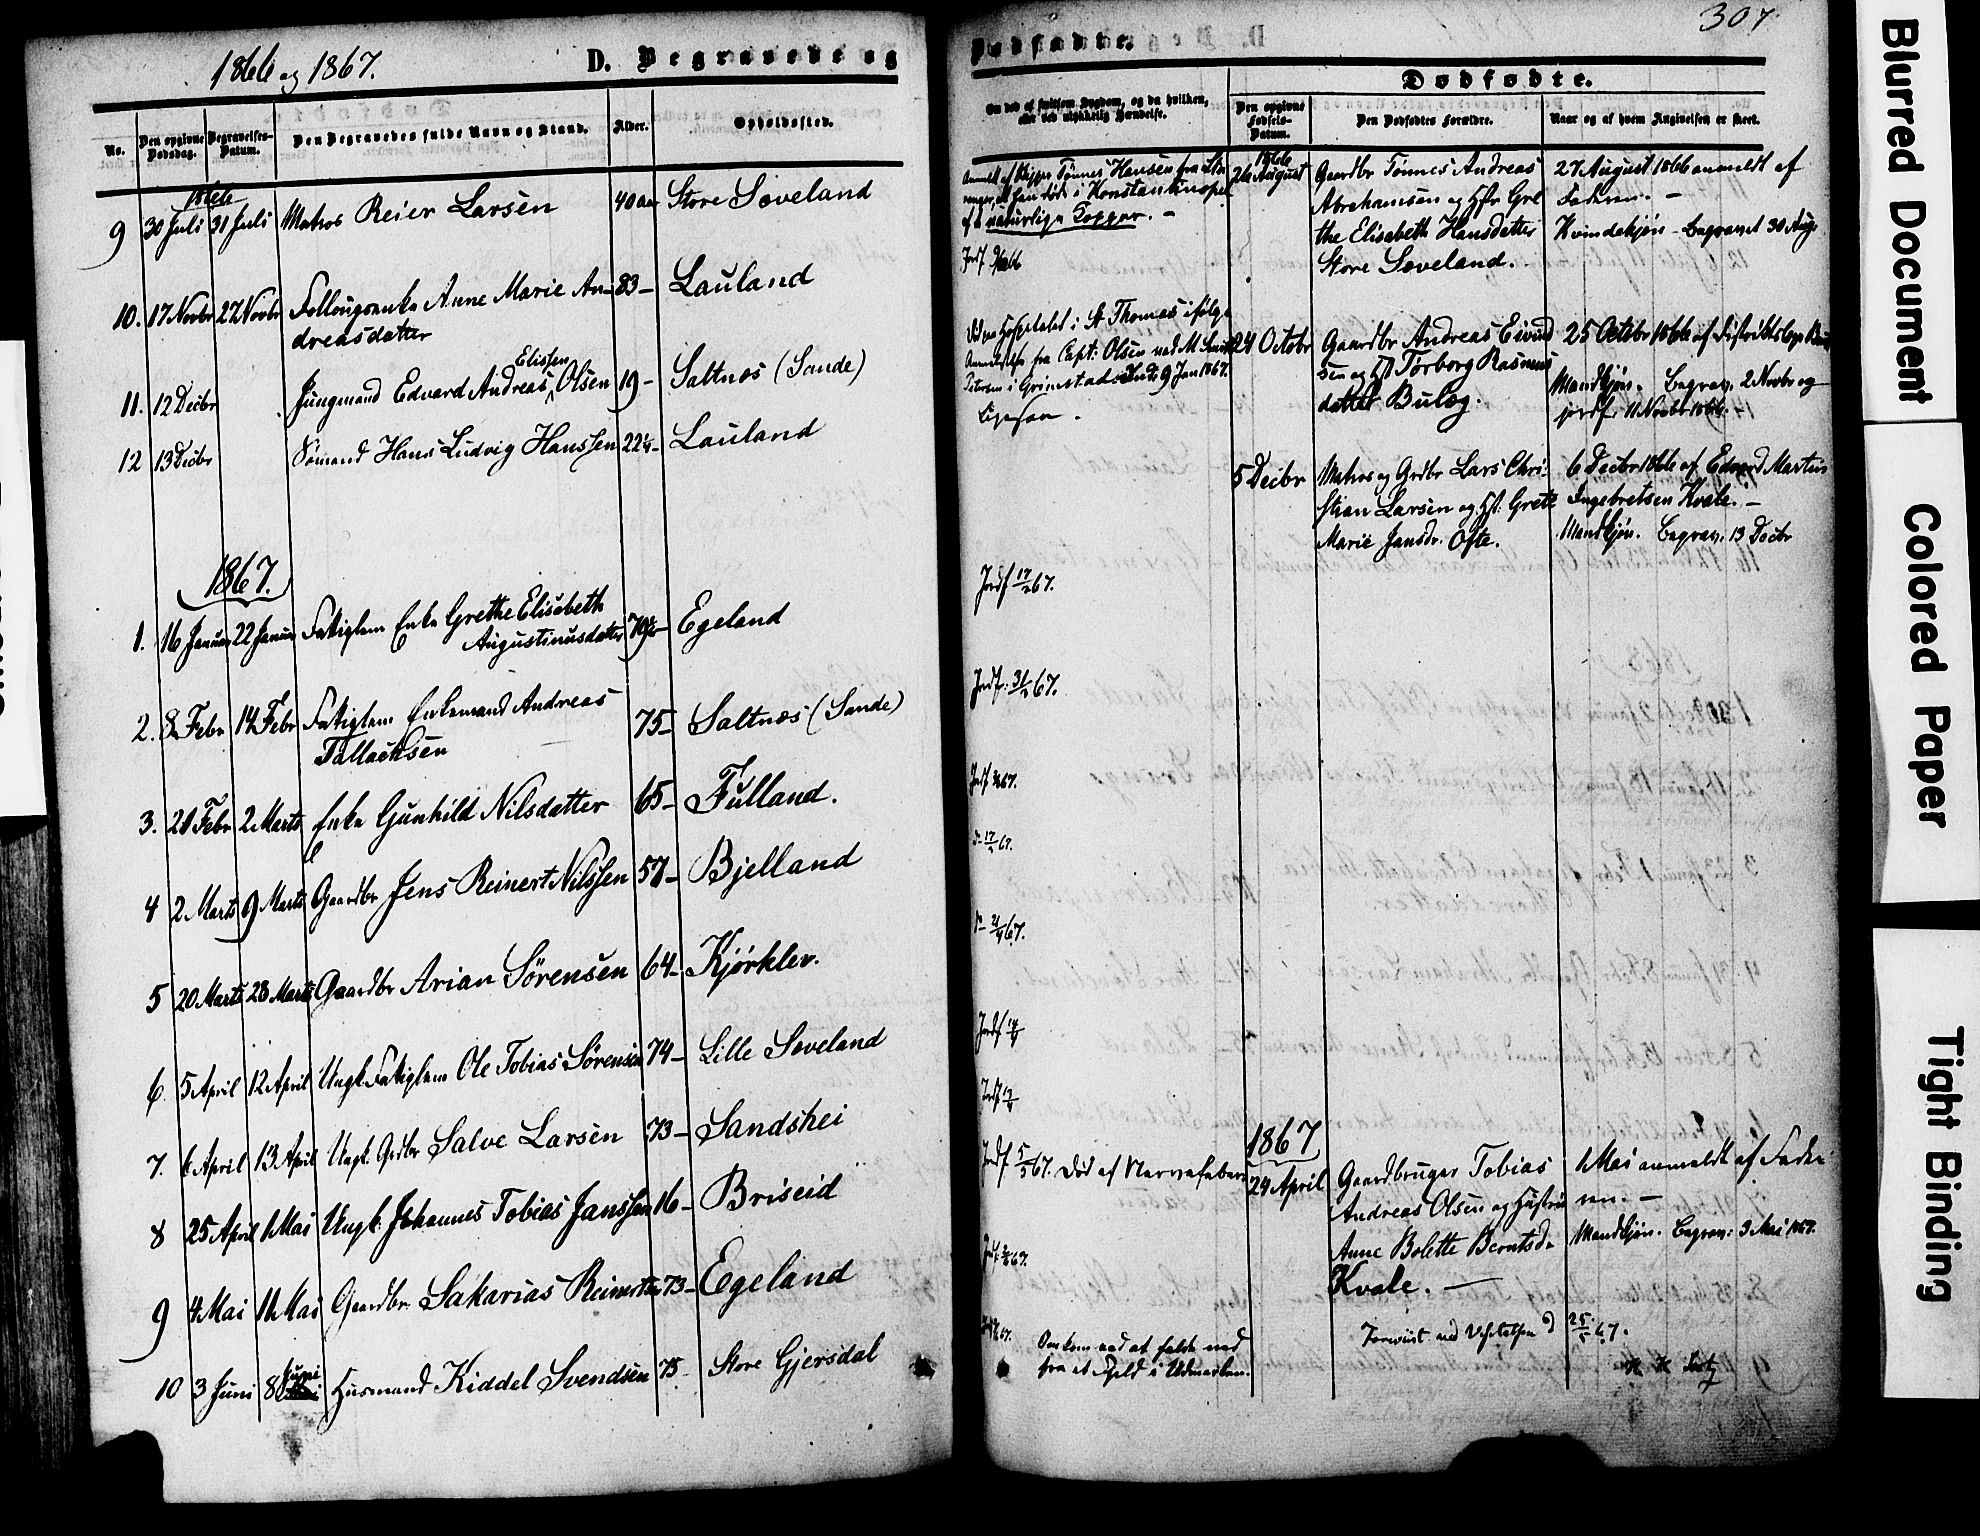 1866 og 1867.
D. Begravede og
No.
Den opgivne Dødsdag.
Begravelses-Datum.
Den Begravedes fulde Navn og Stand.
Alder.
Opholdssted.
1866
9 30 Juli 31 Juli Matros Reier Larsen 40 aar Store Søveland
10. 17 Novbr 22 Novbr Anne Marie An- 83- Lauland
dreasdatter
Elisen
11. 12 Decbr Jungmand Edvard Andreas Olsen 19- Saltnæs (Sande)
12 13 Decbr Sømand Hans Ludvig Hanssen 22 Lauland
1867.
1. 16 Januar 22 Januar Fattiglem Enke Grethe Elisabeth
Augustinusdatter Egeland
2. 8 Febr 14 Febr Fattiglem Enkemand Andreas 75- Saltnæs (Sande)
Tallacksen
3. 21 Febr 2 Marts Enke Gunhild Nilsdatter 65- Fulland.
4 2 Marts 9 Marts Gaardbr Jens Reinert Nilssen 57- Bjelland
5 20 Marts 28 Marts Gaardbr Arian Sörensen 64- Kjörklev.
6. 5 April 12 April Ungk. Fattiglem Ole Tobias Sörensen 74- Lille Søveland
7. 6 April 13 April Ungk. Grdbr Salve Larsen 73- Sandshei
8 25 April 1 Mai Ungk. Johannes Tobias Janssen 16- Briseid
9 4 Mai 11 Mai Gaardbr. Sakarias Reinertsen 73- Egeland
Juni
10 3 Juni 8 Husmand Kiddel Svendsen 75- Store Gjersdal
307.
Dødfødte.
Om død af smitsom Sygdom, og da hvilken,
eller ved ulykkelig Hændelse.
Dødfødte.
Den opgivne Fødsels-Datum.
Den Dødfødtes Forældre.
Naar og af hvem Angivelsen er skeet.
Anmeldt af Skipper Tønnes Hansen fra
at han døde i Konstantinopel
af de naturlige Kopper. -
1866
26 August Gaardbr Tønnes Andreas
Abrahamsen og Hstr Gre
the Elisabeth Hansdatter
Store Søveland.
27 August 1866 anmeldt af
Faderen. -
Kvindekjøn - Begravet 30 Aug.
Død paa Hospitalet i St Thomas ifølge
fra Capt: Olsen
Petersen i Grimstad. 9 Jan 1867.
Ligesaa.
24 Octobr Gaardbr Andreas Eivind
sen og Torborg Rasmus
datter Bulæg.
25 Octobr 1866 af
Mandkjøn. Begrav. 2 Novbr og
jordf. 11 Novbr 1866.
5 Decbr Matros og Grdbr Lars Chri-
stian Larsen og Hst: Grete
Marie Jansdr. Ofte.
6 Decbr 1866 af Edvard Martin
Ingebretsen Kvale. -
Mandkjøn. Begrav. 13 Decbr
Jordf 17/2 67.
Jordf. 67.
Jordf 67.
Jordf 5/5 67. Død af Nervefeber
1867
29 April Gaardbruger Tobias
Andreas Olsen og Hustru
Anne Bolette Berntsdr
Kvale. -
1 Mai anmeldt af Fade-
ren. -
Mandkjøn. Begrav: 3 Mai 1867.
Omkom ved at falde ned
fra et Fjeld i Udmarken.
67.
Blurred Document
Colored Paper
Tight Binding